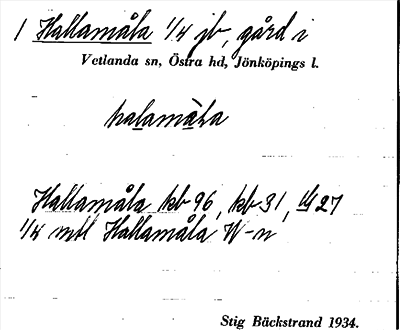 1 Hallamåla 1/4 jb, gård i
Vetlanda sn, Östra hd, Jönköpings l.
halamåla
Hallamåla kb 96, kb 31, 27
1/4 mtl Hallamåla N-n
Stig Bäckstrand 1934.